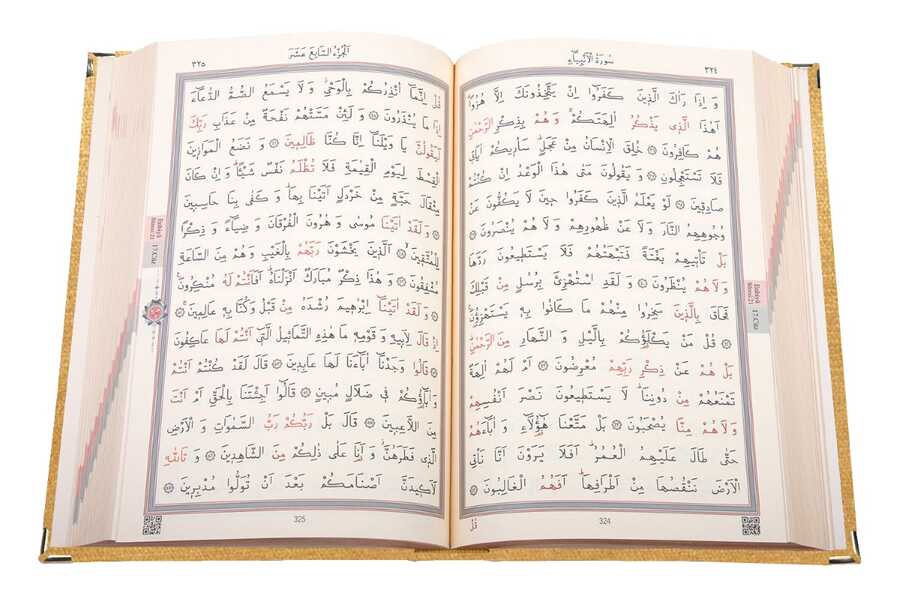 سُورَةُ الْاَنْبِيَاءِ
٣٢٤
وَ اِذَا رَاٰكَ الَّذ۪ينَ كَفَرُٓوا اِنْ يَتَّخِذُونَكَ اِلَّا هُزُوًاۜ
اَهٰذَا الَّذ۪ي يَذْكُرُ اٰلِهَتَكُمْۚ وَ هُمْ بِذِكْرِ الرَّحْمٰنِ
هُمْ كَافِرُونَ ﴿٣٦﴾ خُلِقَ الْاِنْسَانُ مِنْ عَجَلٍۜ سَاُر۪يكُمْ اٰيَات۪ي
فَلَا تَسْتَعْجِلُونِ ﴿٣٧﴾ وَ يَقُولُونَ مَتٰى هٰذَا الْوَعْدُ اِنْ كُنْتُمْ
صَادِق۪ينَ ﴿٣٨﴾ لَوْ يَعْلَمُ الَّذ۪ينَ كَفَرُوا ح۪ينَ لَا يَكُفُّونَ عَنْ
وُجُوهِهِمُ النَّارَ وَ لَا عَنْ ظُهُورِهِمْ وَ لَا هُمْ يُنْصَرُونَ ﴿٣٩﴾
بَلْ تَأْت۪يهِمْ بَغْتَةً فَتَبْهَتُهُمْ فَلَا يَسْتَط۪يعُونَ رَدَّهَا
وَ لَا هُمْ يُنْظَرُونَ ﴿٤٠﴾ وَ لَقَدِ اسْتُهْزِئَ بِرُسُلٍ مِنْ قَبْلِكَ
فَحَاقَ بِالَّذ۪ينَ سَخِرُوا مِنْهُمْ مَا كَانُوا بِه۪ يَسْتَهْزِؤُ۫نَ۟
﴿٤١﴾ قُلْ مَنْ يَكْلَؤُ۬كُمْ بِالَّيْلِ وَ النَّهَارِ مِنَ الرَّحْمٰنِۜ
بَلْ هُمْ عَنْ ذِكْرِ رَبِّهِمْ مُعْرِضُونَ ﴿٤٢﴾ اَمْ لَهُمْ اٰلِهَةٌ
تَمْنَعُهُمْ مِنْ دُونِنَاۜ لَا يَسْتَط۪يعُونَ نَصْرَ اَنْفُسِهِمْ
وَ لَا هُمْ مِنَّا يُصْحَبُونَ ﴿٤٣﴾ بَلْ مَتَّعْنَا هٰٓؤُ۬لَٓاءِ وَ اٰبَٓاءَهُمْ
حَتّٰى طَالَ عَلَيْهِمُ الْعُمُرُۜ اَفَلَا يَرَوْنَ اَنَّا نَأْتِي
الْاَرْضَ نَنْقُصُهَا مِنْ اَطْرَافِهَاۜ اَفَهُمُ الْغَالِبُونَ ﴿٤٤﴾
324
قُلْ
Enbiyâ
Sûresi 21
17.Cüz
اَلْجُزْءُ السَّابِعَ عَشَرَ
٣٢٥
قُلْ اِنَّمَٓا اُنْذِرُكُمْ بِالْوَحْيِۘ وَ لَا يَسْمَعُ الصُّمُّ الدُّعَٓاءَ
اِذَا مَا يُنْذَرُونَ ﴿٤٥﴾ وَ لَئِنْ مَسَّتْهُمْ نَفْحَةٌ مِنْ عَذَابِ رَبِّكَ
لَيَقُولُنَّ يَا وَيْلَنَٓا اِنَّا كُنَّا ظَالِم۪ينَ ﴿٤٦﴾ وَ نَضَعُ الْمَوَاز۪ينَ
الْقِسْطَ لِيَوْمِ الْقِيٰمَةِ فَلَا تُظْلَمُ نَفْسٌ شَيْـًٔاۜ وَ اِنْ كَانَ
مِثْقَالَ حَبَّةٍ مِنْ خَرْدَلٍ اَتَيْنَا بِهَاۜ وَ كَفٰى بِنَا حَاسِب۪ينَ
﴿٤٧﴾ وَ لَقَدْ اٰتَيْنَا مُوسٰى وَ هٰرُونَ الْفُرْقَانَ وَ ضِيَٓاءً وَ ذِكْرًا
لِلْمُتَّق۪ينَۙ ﴿٤٨﴾ اَلَّذ۪ينَ يَخْشَوْنَ رَبَّهُمْ بِالْغَيْبِ وَ هُمْ مِنَ السَّاعَةِ
مُشْفِقُونَ ﴿٤٩﴾ وَ هٰذَا ذِكْرٌ مُبَارَكٌ اَنْزَلْنَاهُۜ اَفَاَنْتُمْ لَهُ مُنْكِرُونَ۟
﴿٥٠﴾ وَ لَقَدْ اٰتَيْنَٓا اِبْرٰه۪يمَ رُشْدَهُ مِنْ قَبْلُ وَ كُنَّا بِه۪ عَالِم۪ينَۚ ﴿٥١﴾
اِذْ قَالَ لِاَب۪يهِ وَ قَوْمِه۪ مَا هٰذِهِ التَّمَاث۪يلُ الَّت۪ٓي اَنْتُمْ لَهَا عَاكِفُونَ
﴿٥٢﴾ قَالُوا وَجَدْنَٓا اٰبَٓاءَنَا لَهَا عَابِد۪ينَ ﴿٥٣﴾ قَالَ لَقَدْ كُنْتُمْ اَنْتُمْ
وَ اٰبَٓاؤُ۬كُمْ ف۪ي ضَلَالٍ مُب۪ينٍ ﴿٥٤﴾ قَالُٓوا اَجِئْتَنَا بِالْحَقِّ اَمْ اَنْتَ
مِنَ اللَّاعِب۪ينَ ﴿٥٥﴾ قَالَ بَلْ رَبُّكُمْ رَبُّ السَّمٰوَاتِ وَ الْاَرْضِ
الَّذ۪ي فَطَرَهُنَّۘ وَ اَنَا۬ عَلٰى ذٰلِكُمْ مِنَ الشَّاهِد۪ينَ ﴿٥٦﴾ وَ تَاللّٰهِ
لَاَك۪يدَنَّ اَصْنَامَكُمْ بَعْدَ اَنْ تُوَلُّوا مُدْبِر۪ينَ ﴿٥٧﴾
325
Enbiyâ
Sûresi 21
17.Cüz